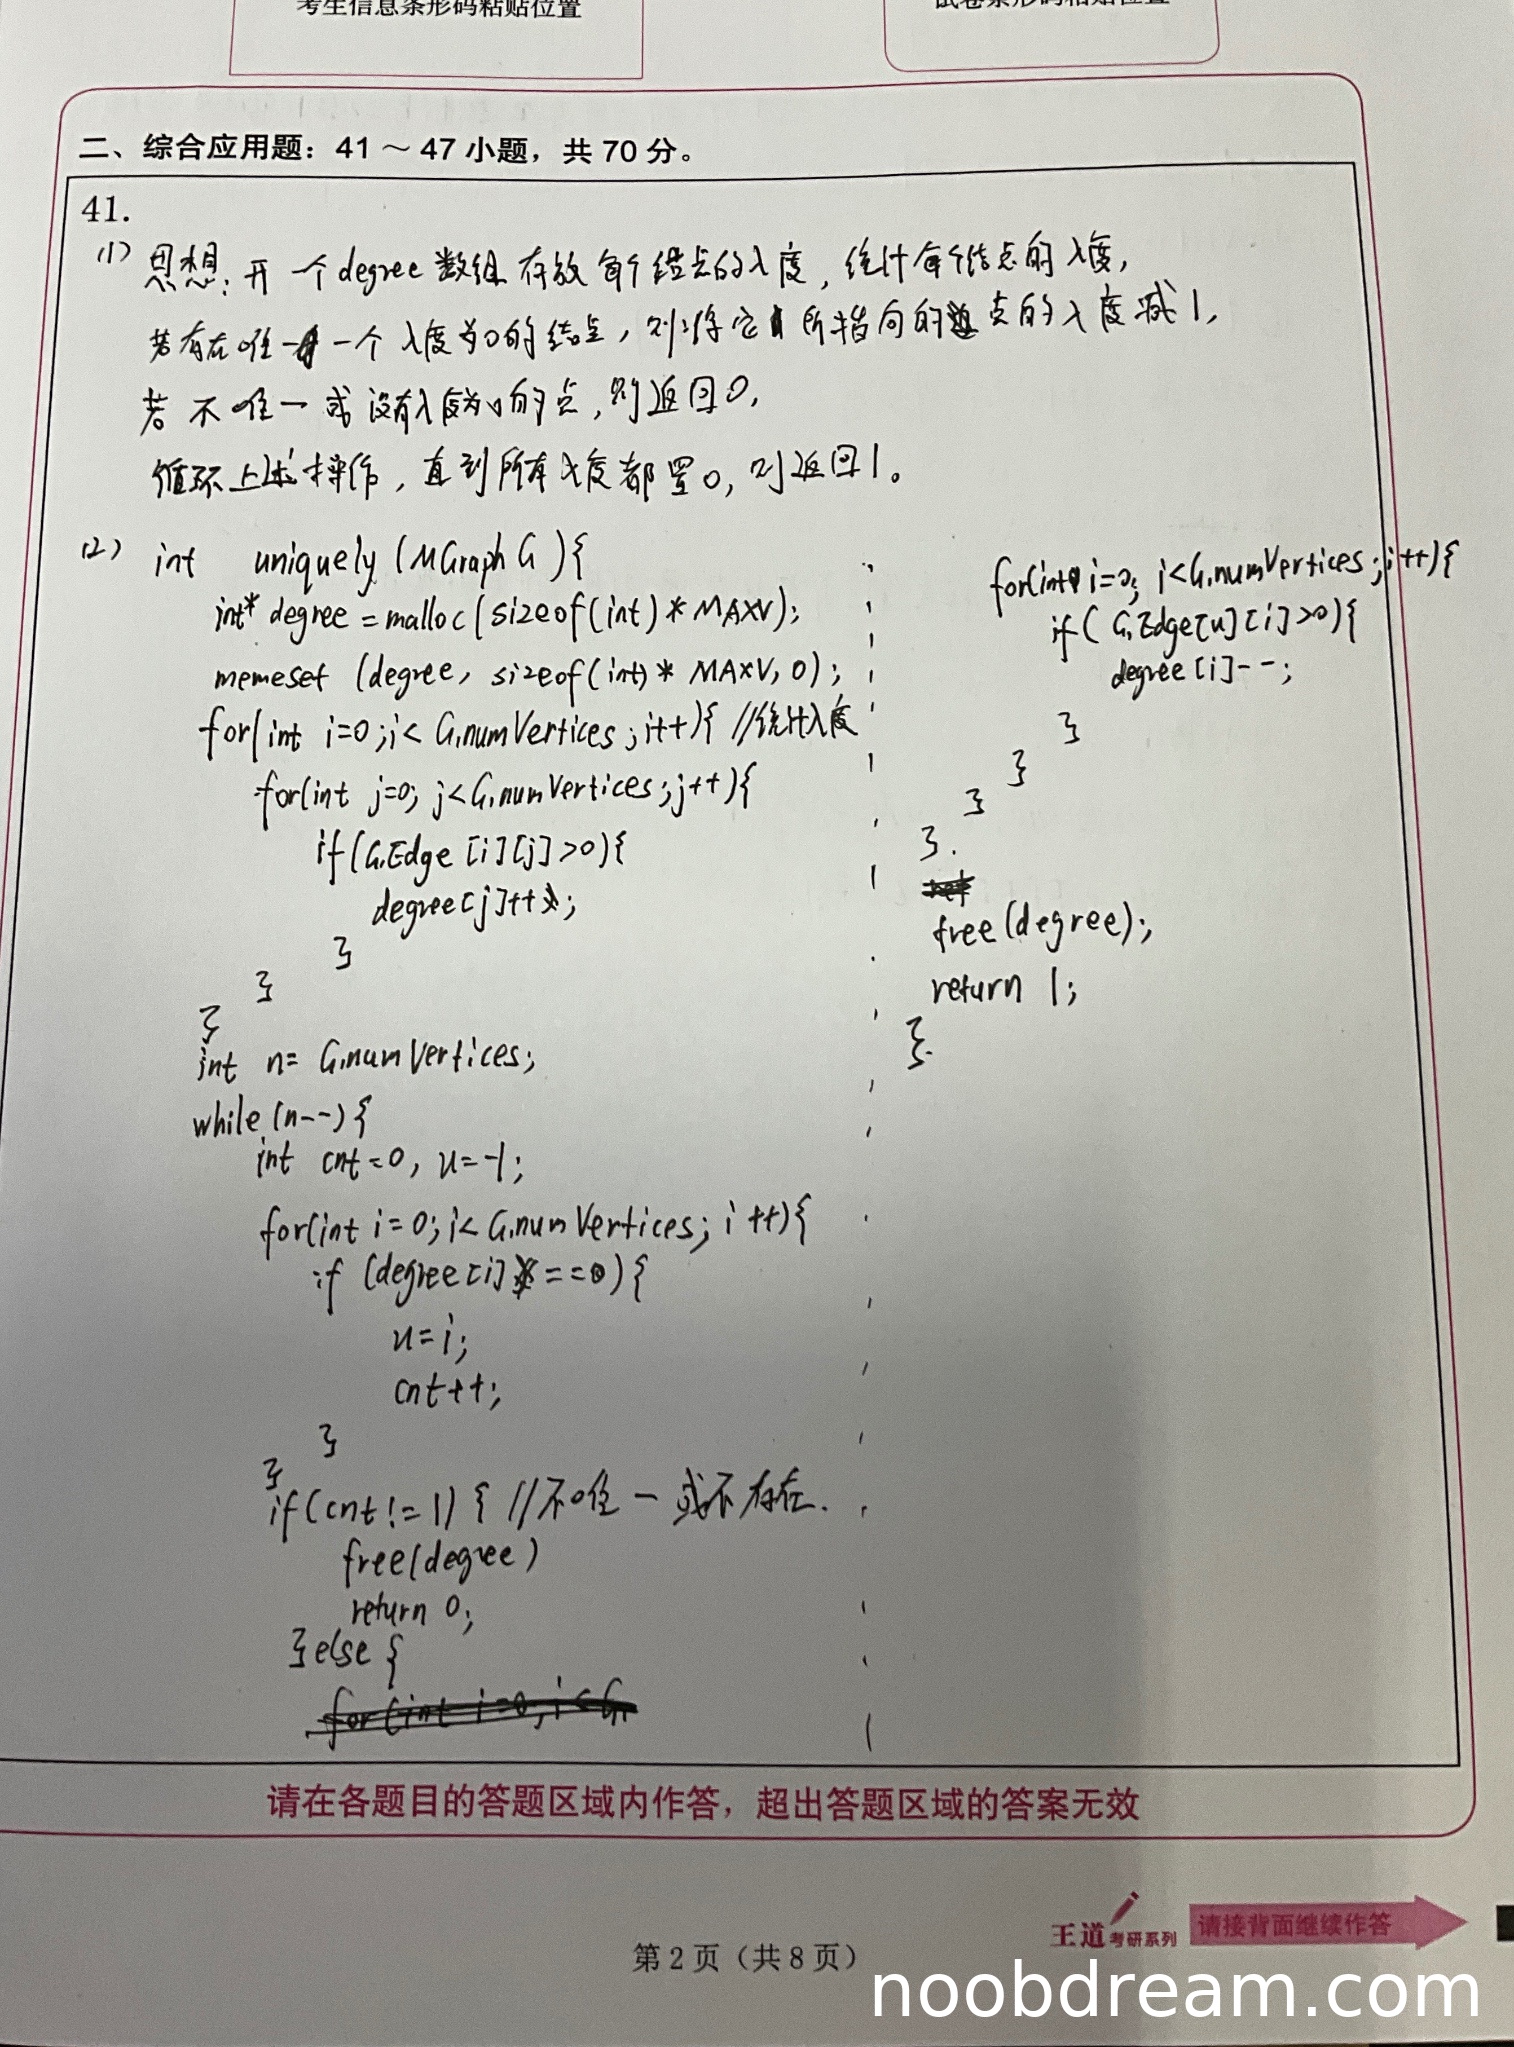 考生信息条形码粘贴位置
试卷条形码粘贴位置
二、综合应用题：41～47小题，共70分。
41.
(1) 思想：开一个degree数组存放每个结点的入度，统计每个结点的入度，
若存在唯一一个入度为0的结点，则将它所指向的点的入度减1，
若不唯一或没有入度为0的点，则返回0，
循环上述操作，直到所有入度都置0，则返回1。
(2) int uniquely (MGraph G){
int* degree = malloc(sizeof(int)*MAXV);
memeset (degree, sizeof(int)*MAXV, 0);
for(int i=0;i< G.numVertices;i++){ //统计入度
for(int j=0; j<G.numVertices;j++){
if(G.Edge[i][j]>0){
degree[j]++;
}
}
}
int n= G.numVertices;
while(n--){
int cnt=0, u=-1;
for(int i=0;i< G.numVertices; i++){
if (degree[i]==0){
u=i;
cnt++;
}
}
if(cnt!=1) { //不唯一或不存在.
free(degree)
return 0;
}else {
for(int i=0;i<G.
for(int i=0; i<G.numVertices;i++){
if( G.Edge[u][i]>0){
degree[i]--;
}
}
}
}.
free(degree);
return 1;
}.
请在各题目的答题区域内作答，超出答题区域的答案无效
王道考研系列
请接背面继续作答
第2页（共8页）
noobdream.com